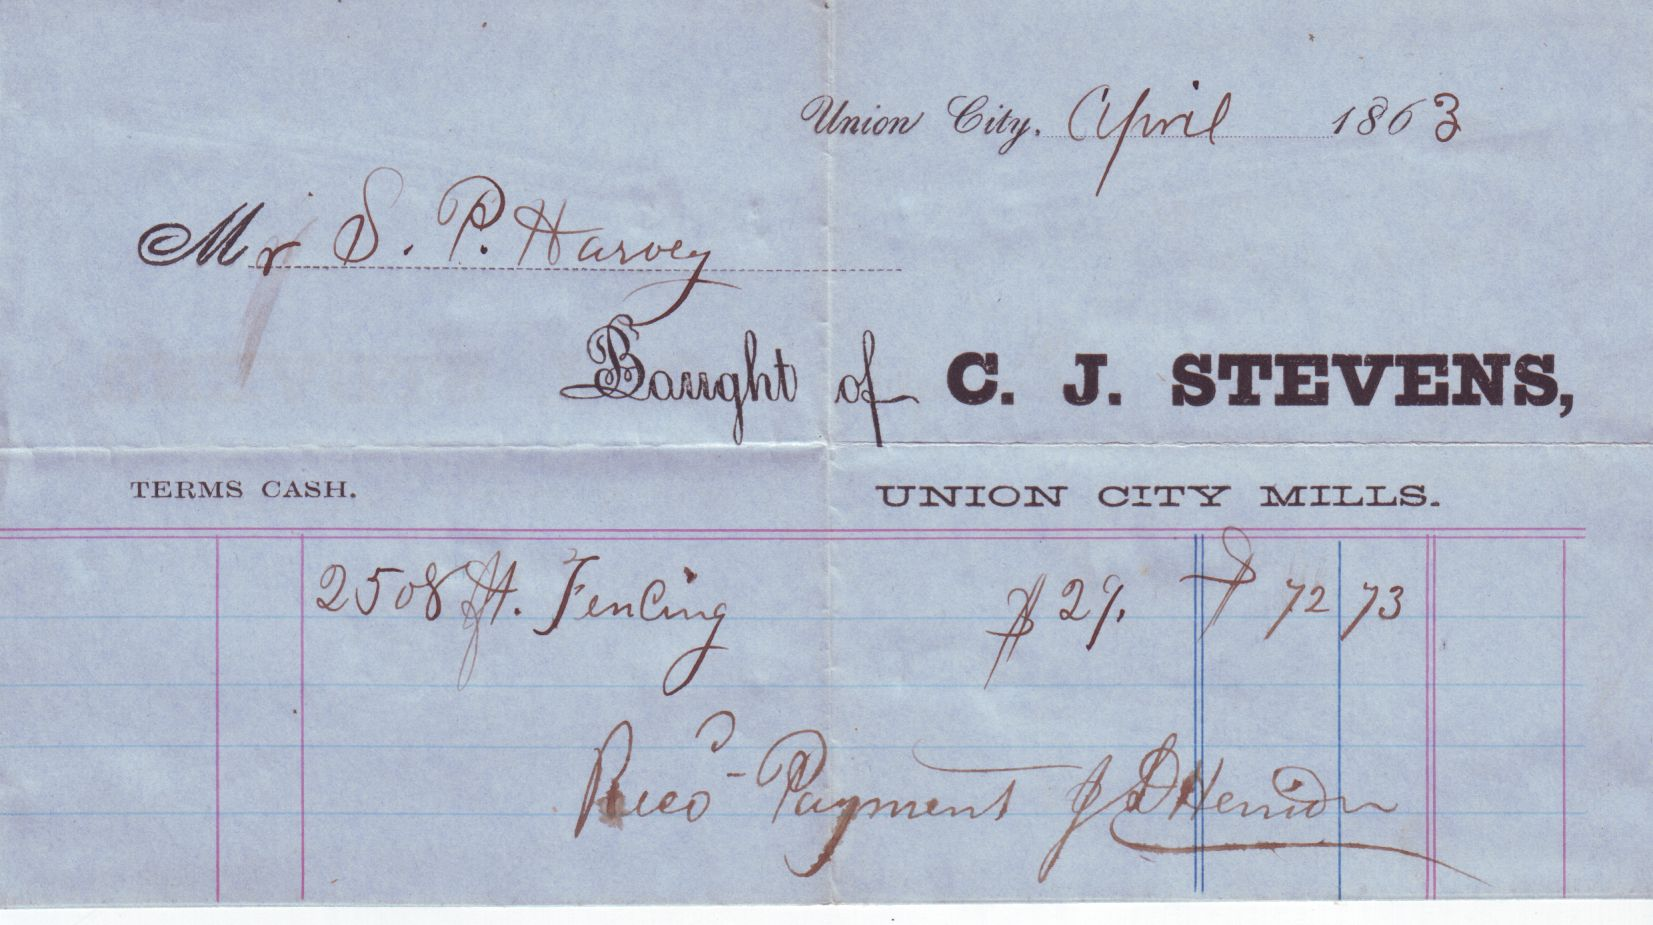 Union City, April 1863
Mr S. P. Harvey
Bought of C. J. STEVENS,
TERMS CASH. UNION CITY MILLS.
2508 ft. Fencing $ 29. $ 72 73
Recd Payment J D